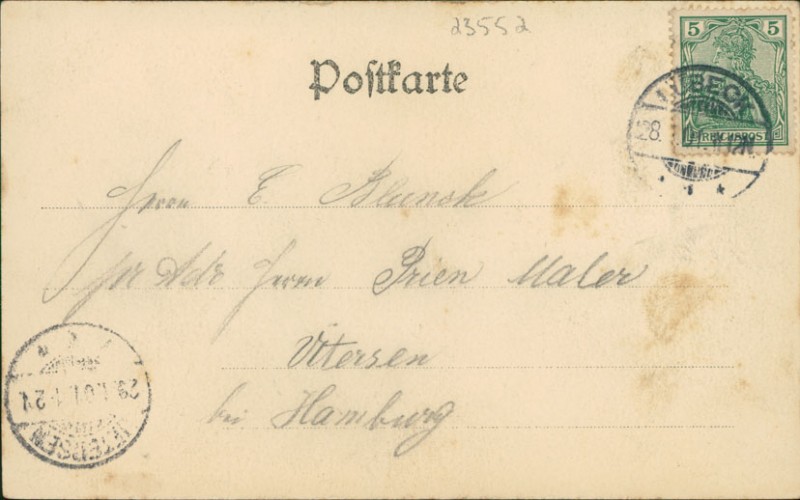 23552
5 5
REICHSPOST
Postkarte
LÜBECK
28.
Herrn E. Blunck
pr Adr Herrn Prien Maler
Utersen
bei Hamburg
29.1.01.1-2N
UETERSEN